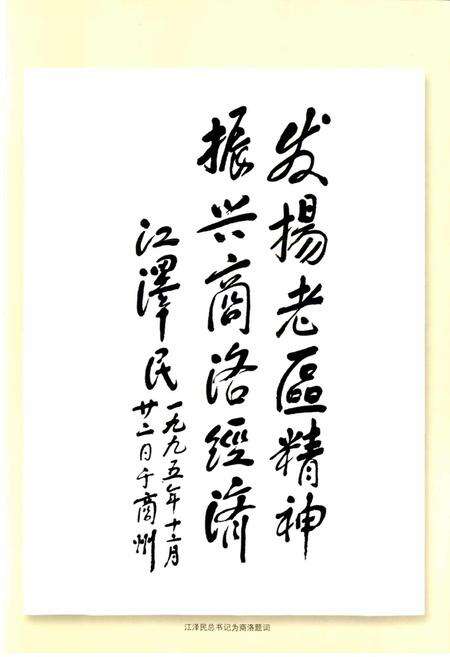 发揚老區精神
振兴商洛經济
江澤民
一九九五年十二月
廿二日于商州
江泽民总书记为商洛题词